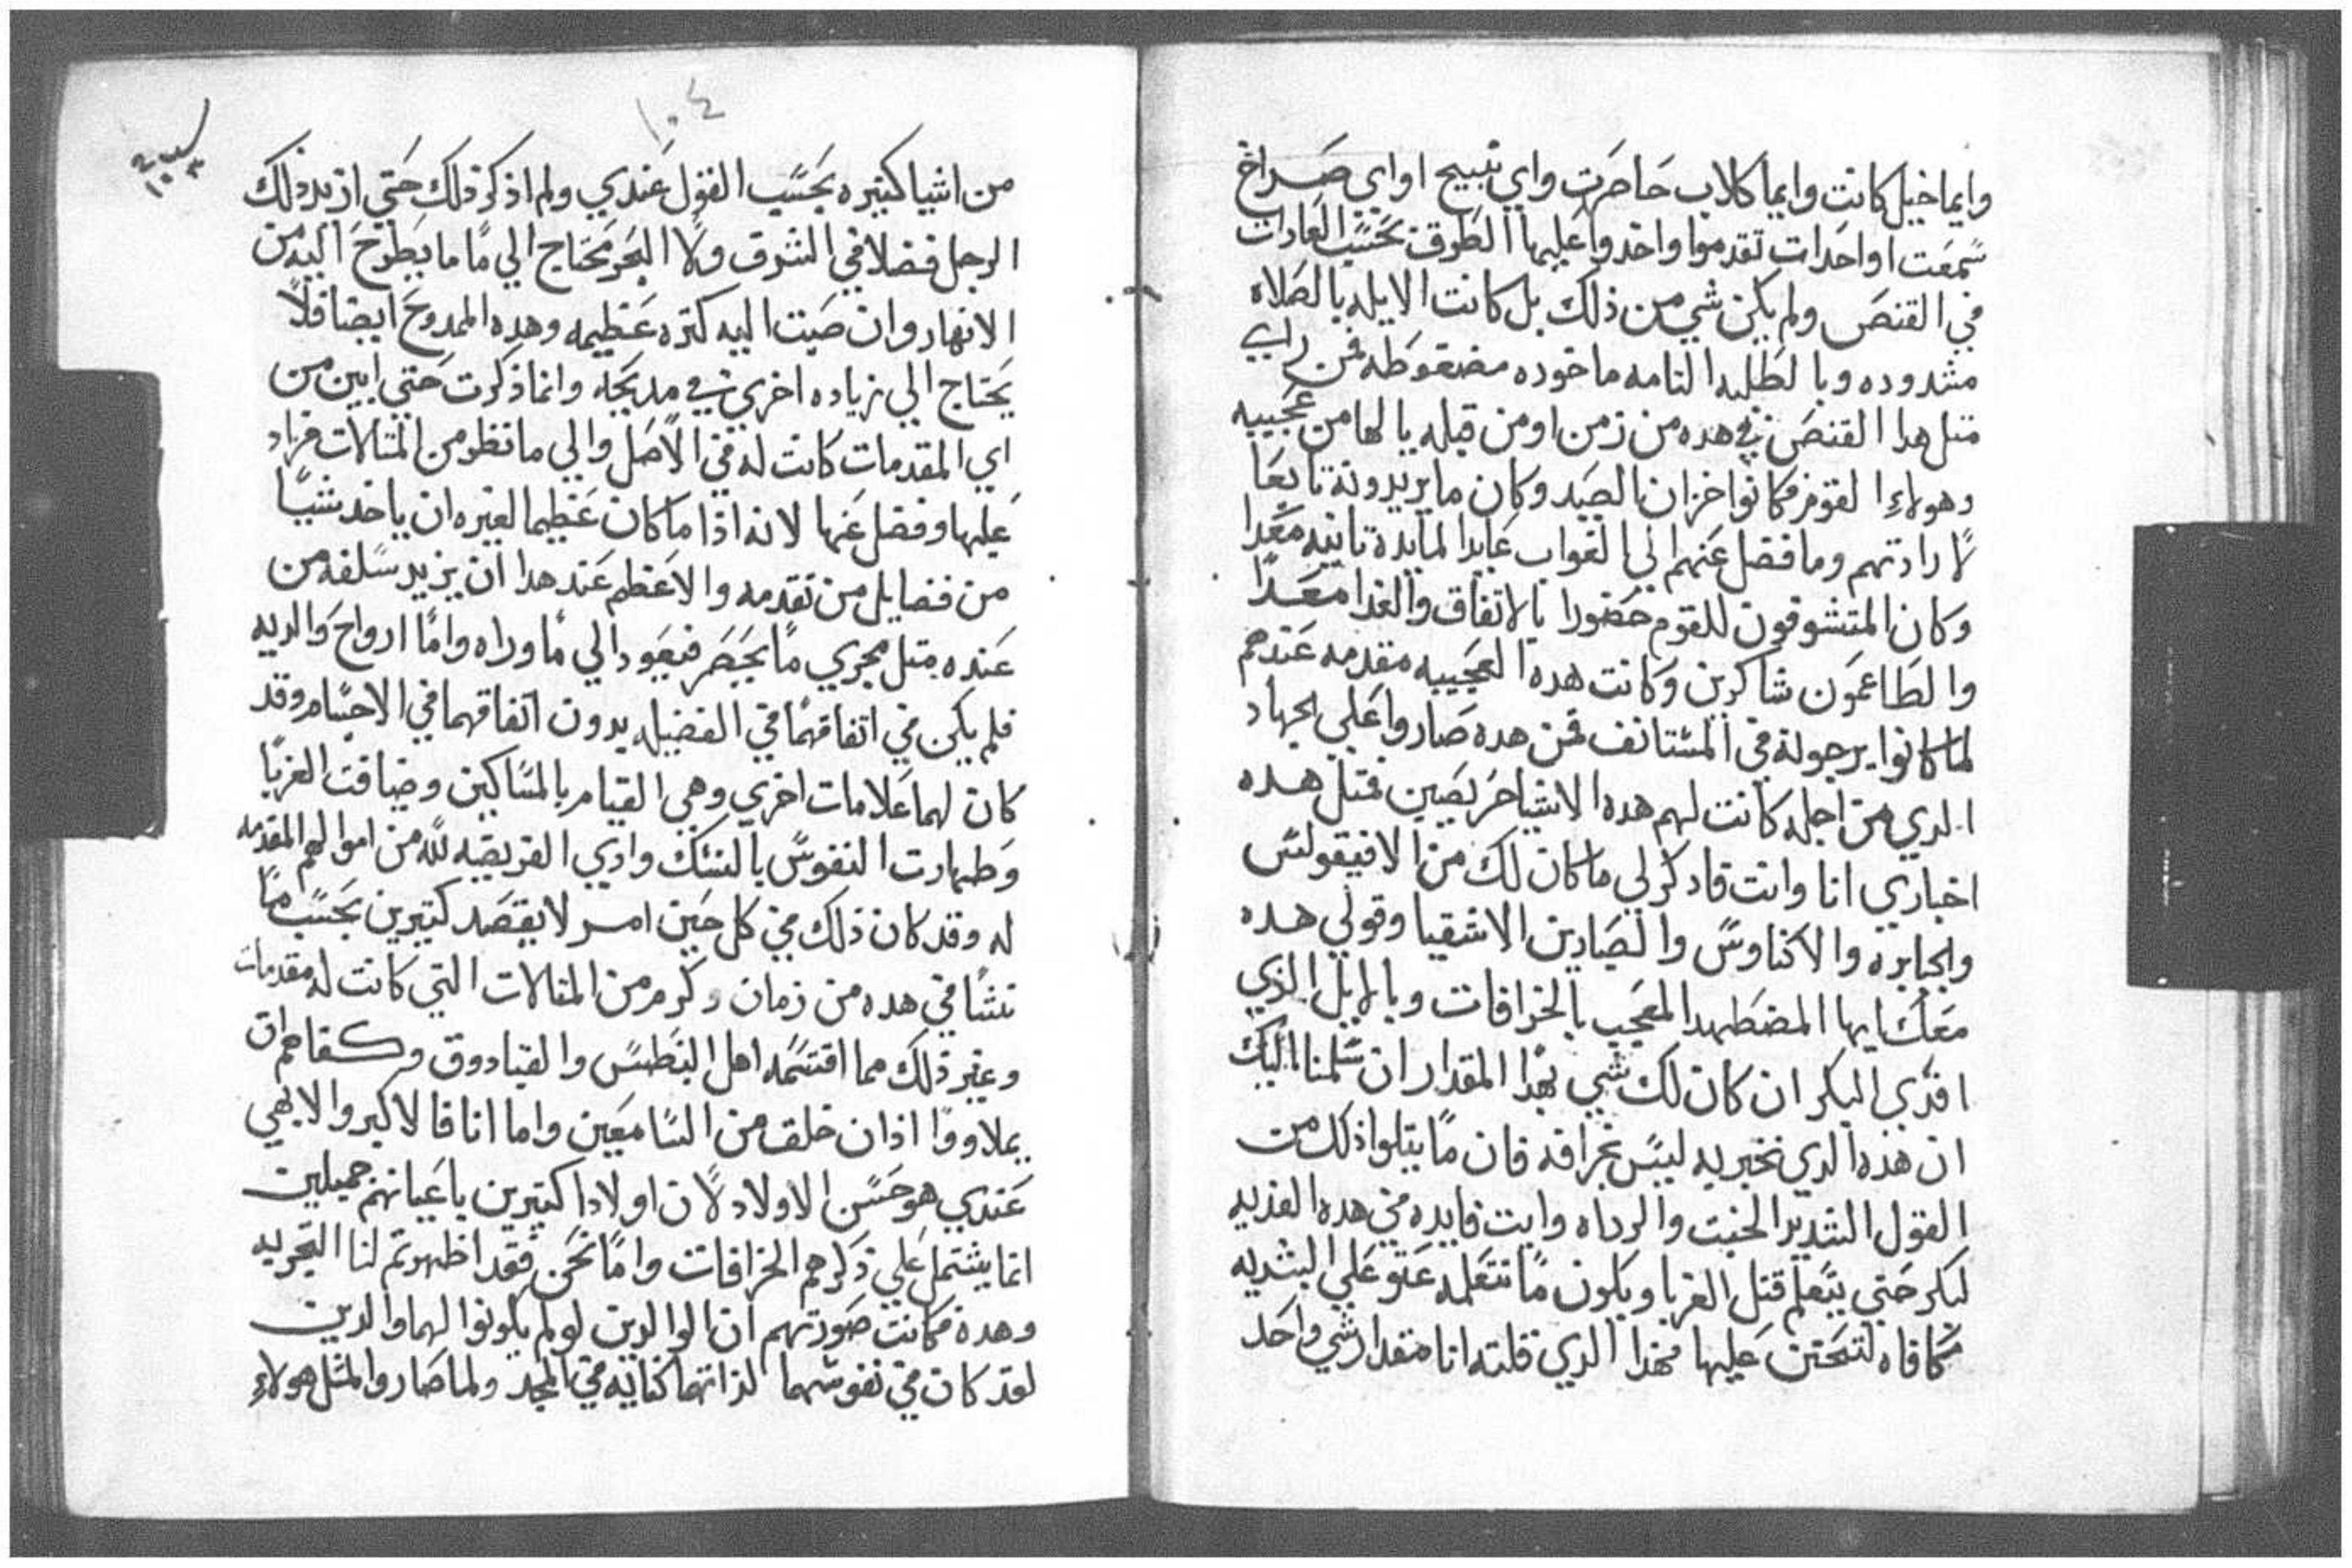 وايما خيل كانت وايما كلاب حاصرت واي تبيح او اي صراخ
سمعت او احدات تقدموا واخدوا عليها الطرق بحسب العادات
في القنص ولم يكن شي من ذلك بل كانت الايله بالصلاه
مشدوده وبالطلبه التامه ماخوده مضغوطه فمن راي
متل هدا القنص في هده من زمن او من قبله يا لها من عجيبيه
وهولاء القوم فكانوا خزان الصيد وكان ما يريدونه تابعا
لارادتهم وما فضل عنهم الي الغواب عايدا لمايدة تانيه معدا
وكان المتشوقون للقوم حضورا بالاتفاق والغدا معدا
والطاعمون شاكرين وكانت هده العجيبيه مقدمه عندهم
لما كانوا يرجونه في المستانف فمن هده صاروا علي الجهاد
الدي من اجله كانت لهم هده الاشيا حريصين فمتل هده
اخباري انا وانت فادكر لي ما كان لك من الافيقولس
والجبابره والاكتاوس والصيادين الاشقيا وقولي هده
معك ايها المضطهد المعجب بالخرافات وبالايل الذي
افدي البكر ان كان لك شي بهدا المقدار ان سلمنا اليك
ان هده الدي نخبر به ليس بخرافه فان ما يتلوا ذلك من
القول الشديد الخبت والرداه وايت فايده في هده الفديه
لبكر حتي يتعلم قتل الغربا ويكون ما تتعلمه عتو علي البشديه
مكافاه لتتحنن عليها فهدا الدي قلته انا مقدار شي واحد
١٠٤
من اشيا كتيره بحسب القول عندي ولم اذكر ذلك حتي ازيد ذلك
الرجل فضلا في الشرف ولا البحر محتاج الي ما ما يطرح اليه من
الانهار وان صبت اليه كتره عظيمه وهده الممدوح ايضا فلا
يحتاج الي زياده اخري في مديحه وانما ذكرت حتي ابين من
اي المقدمات كانت له في الاصل والي ما نظر من المتالات فزاد
عليها وفضل عنها لانه اذا ما كان عظيما لغيره ان ياخد شيا
من فضايل من تقدمه والاعظم عند هدا ان يزيد سلفه من
عنده متل مجري ما يحضر فيعود الي ما وراه واما ارواح والديه
فلم يكن في اتفاقهما في الفضيله بدون اتفاقهما في الاجسام وقد
كان لهما علامات اخري وهي القيام بالمساكين وضيافت الغربا
وطهارت النفوس بالنسك وادي الفريضه لله من اموالهم المقدمه
له وقد كان ذلك في كل حين امر لا يقصد كتيرين بحسب ما
نشا في هده من زمان وكرم من المتالات التي كانت له مقدمات
وغير ذلك مما اقتسمه اهل البنطس والقبادوق وكفاهم ان
يملا ووا اذان خلق من السامعين واما انا فالاكبر والابهي
عندي هو حسن الاولاد لان اولادا كتيرين باعيانهم جميلين
انما يشتمل علي ذكرهم الخرافات واما نحن فقد اظهرتم لنا التجربه
وهده فكانت صورتهم ان الوالدين لو لم يكونوا لهما والدين
لقد كان في نفوسهما لذاتهما كفايه في المجد ولما صاروا لمتل هولاء